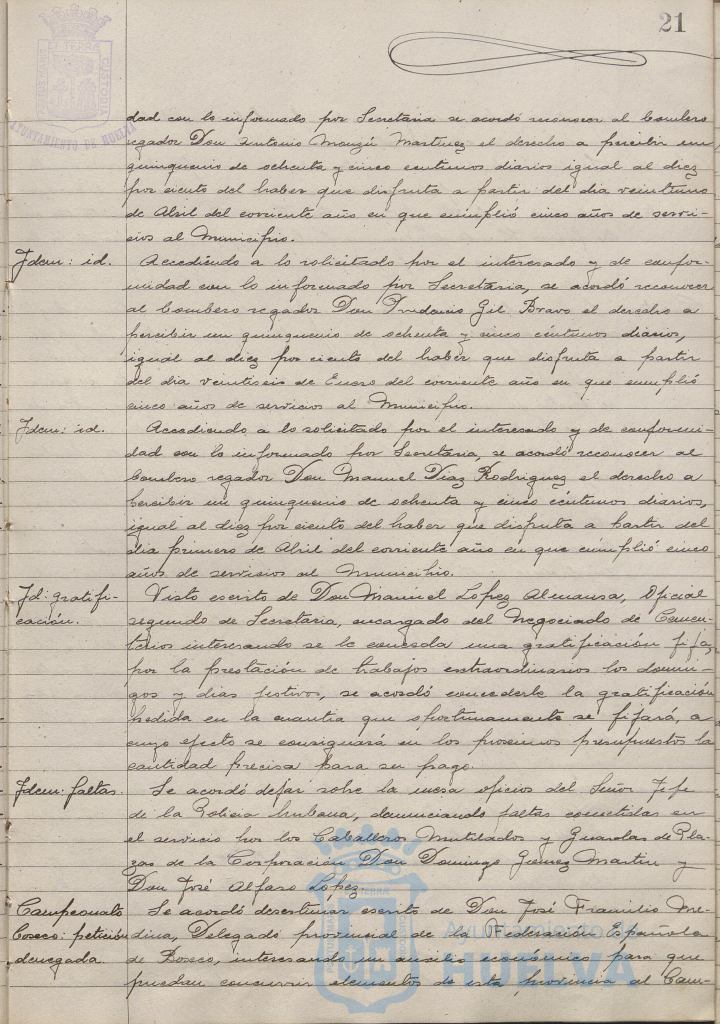 21
AYUNTAMIENTO DE HUELVA
dad con lo informado por Secretaría se acordó reconocer al bombero
regador Don Antonio Monzú Martinez el derecho a percibir un
quinquenio de ochenta y cinco centimos diarios igual al diez
por ciento del haber que disfruta a partir del dia veintiuno
de Abril del corriente año en que cumplió cinco años de servi-
cios al Municipio.
Idem: id. Accediendo a lo solicitado por el interesado y de confor-
midad con lo informado por Secretaría, se acordó reconocer
al bombero regador Don Prudencio Gil Bravo el derecho a
percibir un quinquenio de ochenta y cinco céntimos diarios,
igual al diez por ciento del haber que disfruta a partir
del dia veintiseis de Enero del corriente año en que cumplió
cinco años de servicios al Municipio.
Idem: id. Accediendo a lo solicitado por el interesado y de conformi-
dad con lo informado por Secretaría, se acordó reconocer al
bombero regador Don Manuel Diaz Rodriguez el derecho a
percibir un quinquenio de ochenta y cinco céntimos diarios,
igual al diez por ciento del haber que disfruta a partir del
dia primero de Abril del corriente año en que cumplió cinco
años de servicios al Municipio.
Id: gratifi- Visto escrito de Don Manuel Lopez Almansa, Oficial
cación. segundo de Secretaria, encargado del Negociado de Cemen-
terios interesando se le conceda una gratificación fija,
por la prestación de trabajos extraordinarios los domin-
gos y dias festivos, se acordó concederle la gratificación
pedida en la cuantia que oportunamente se fijará, a
cuyo efecto se consignará en los proximos presupuestos la
cantidad precisa para su pago.
Idem: faltas. Se acordó dejar sobre la mesa oficios del Señor Jefe
de la Policia Urbana, denunciando faltas cometidas en
el servicio por los Caballeros Mutilados y Guardas de Pla-
zas de la Corporación Don Domingo Gómez Martin y
Don José Alfaro López.
Campeonato Se acordó desestimar escrito de Don José Framilio Me-
Boseo: petición dina, Delegado provincial de la Federación Española
denegada. de Boxeo, interesando un auxilio económico para que
puedan concurrir elementos de esta provincia al Cam-
Ayuntamiento de
HUELVA